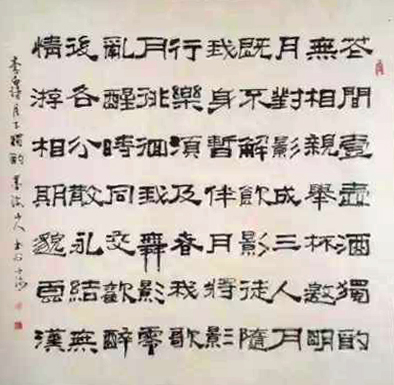 花間壹壺酒獨酌
無相親舉杯邀明
月對影成三人月
既不解飲影徒隨
我身暫伴月將影
行樂須及春我歌
月徘徊我舞影零
亂醒時同交歡醉
後各分散永結無
情游相期邈雲漢
李白詩月下獨酌 山人